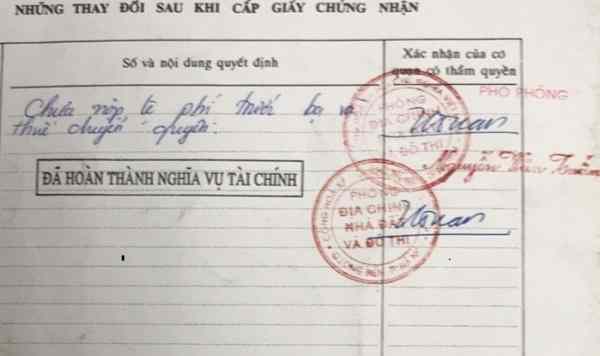 NHỮNG THAY ĐỔI SAU KHI CẤP GIẤY CHỨNG NHẬN
Số và nội dung quyết định
Xác nhận của cơ
quan có thẩm quyền
Chưa nộp lệ phí trước bạ và
thuế chuyển quyền.
PHÓ PHÒNG
PHÒNG
ĐỊA CHÍNH
ĐÔ THỊ
Nguyễn Văn
ĐÃ HOÀN THÀNH NGHĨA VỤ TÀI CHÍNH
ĐỊA CHÍNH
NHÀ ĐẤT
VÀ ĐÔ THỊ